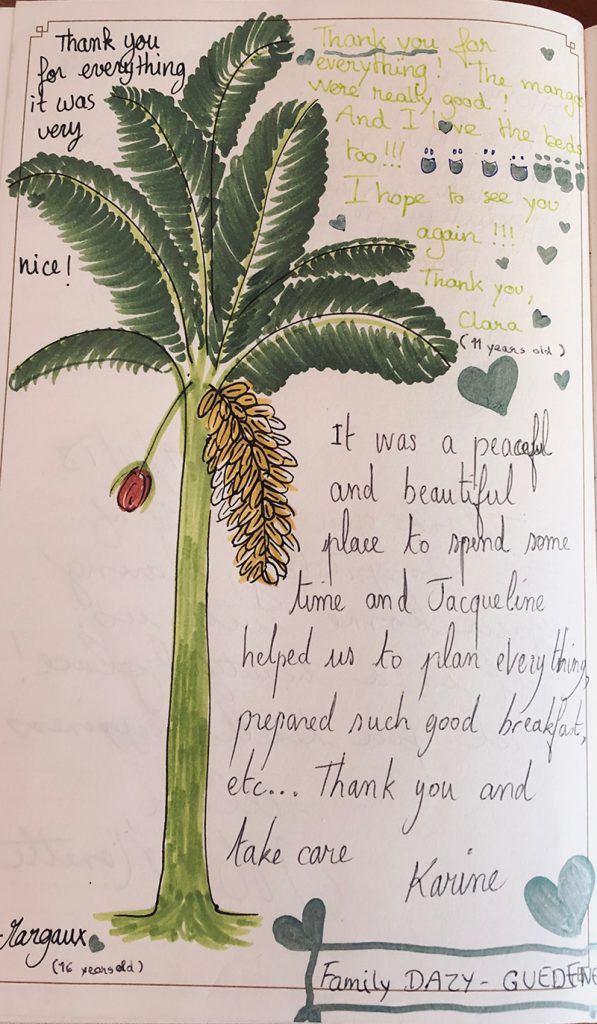 Thank you
for everything
it was
very
nice!
Margaux
(16 years old)
Thank you for
everything! The mangos
were really good!
And I love the beds
too!!!
I hope to see you
again!!!
Thank you,
Clara
(11 years old)
It was a peaceful
and beautiful
place to spend some
time and Jacqueline
helped us to plan everything,
prepared such good breakfast,
etc... Thank you and
take care
Karine
Family DAZY - GUEDENE